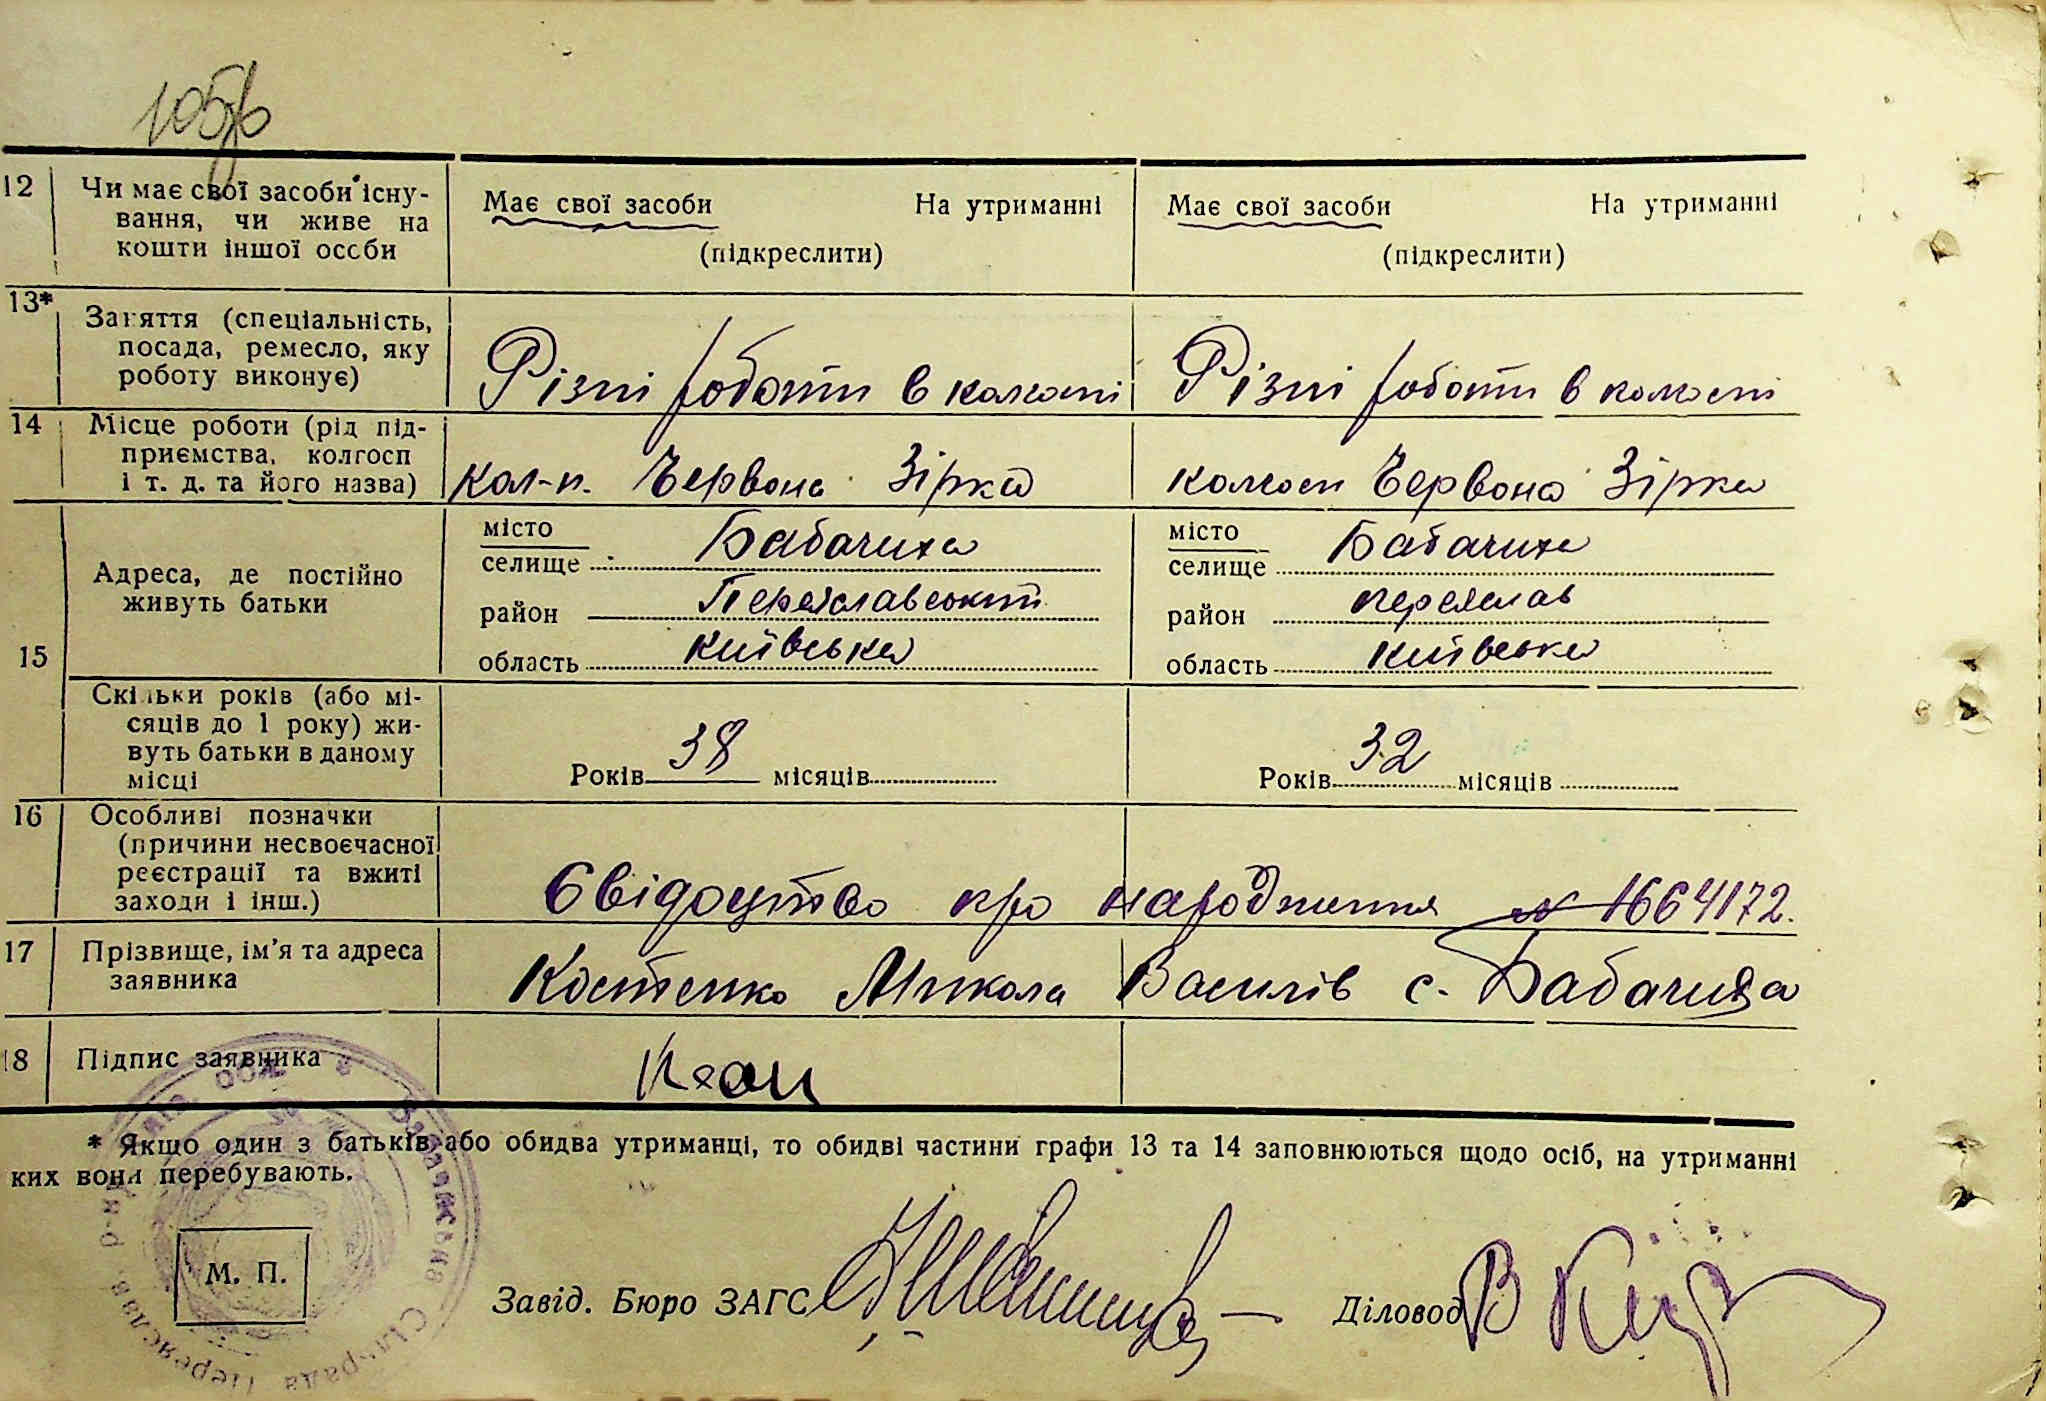 12 Чи має свої засоби існу-
вання, чи живе на
кошти іншої особи
Має свої засоби На утриманні
(підкреслити)
Має свої засоби На утриманні
(підкреслити)
13* Заняття (спеціальність,
посада, ремесло, яку
роботу виконує)
Різні роботи в колгоспі
Різні роботи в колгоспі
14 Місце роботи (рід під-
приємства, колгосп
і т. д. та його назва)
кол-п. Червона Зірка
колгосп Червона Зірка
15 Адреса, де постійно
живуть батьки
місто
селище Бабачиха
район Переяславський
область Київська
місто
селище Бабачиха
район Переяслав
область Київська
Скільки років (або мі-
сяців до 1 року) жи-
вуть батьки в даному
місці
Років 38 місяців
Років 32 місяців
16 Особливі позначки
(причини несвоєчасної
реєстрації та вжиті
заходи і інш.)
Свідоцтво про народження № 1664172.
17 Прізвище, ім'я та адреса
заявника
Костенко Микола Василів с. Бабачиха
18 Підпис заявника
* Якщо один з батьків або обидва утриманці, то обидві частини графи 13 та 14 заповнюються щодо осіб, на утриманні
ких вони перебувають.
М. П.
Завід. Бюро ЗАГС
Діловод